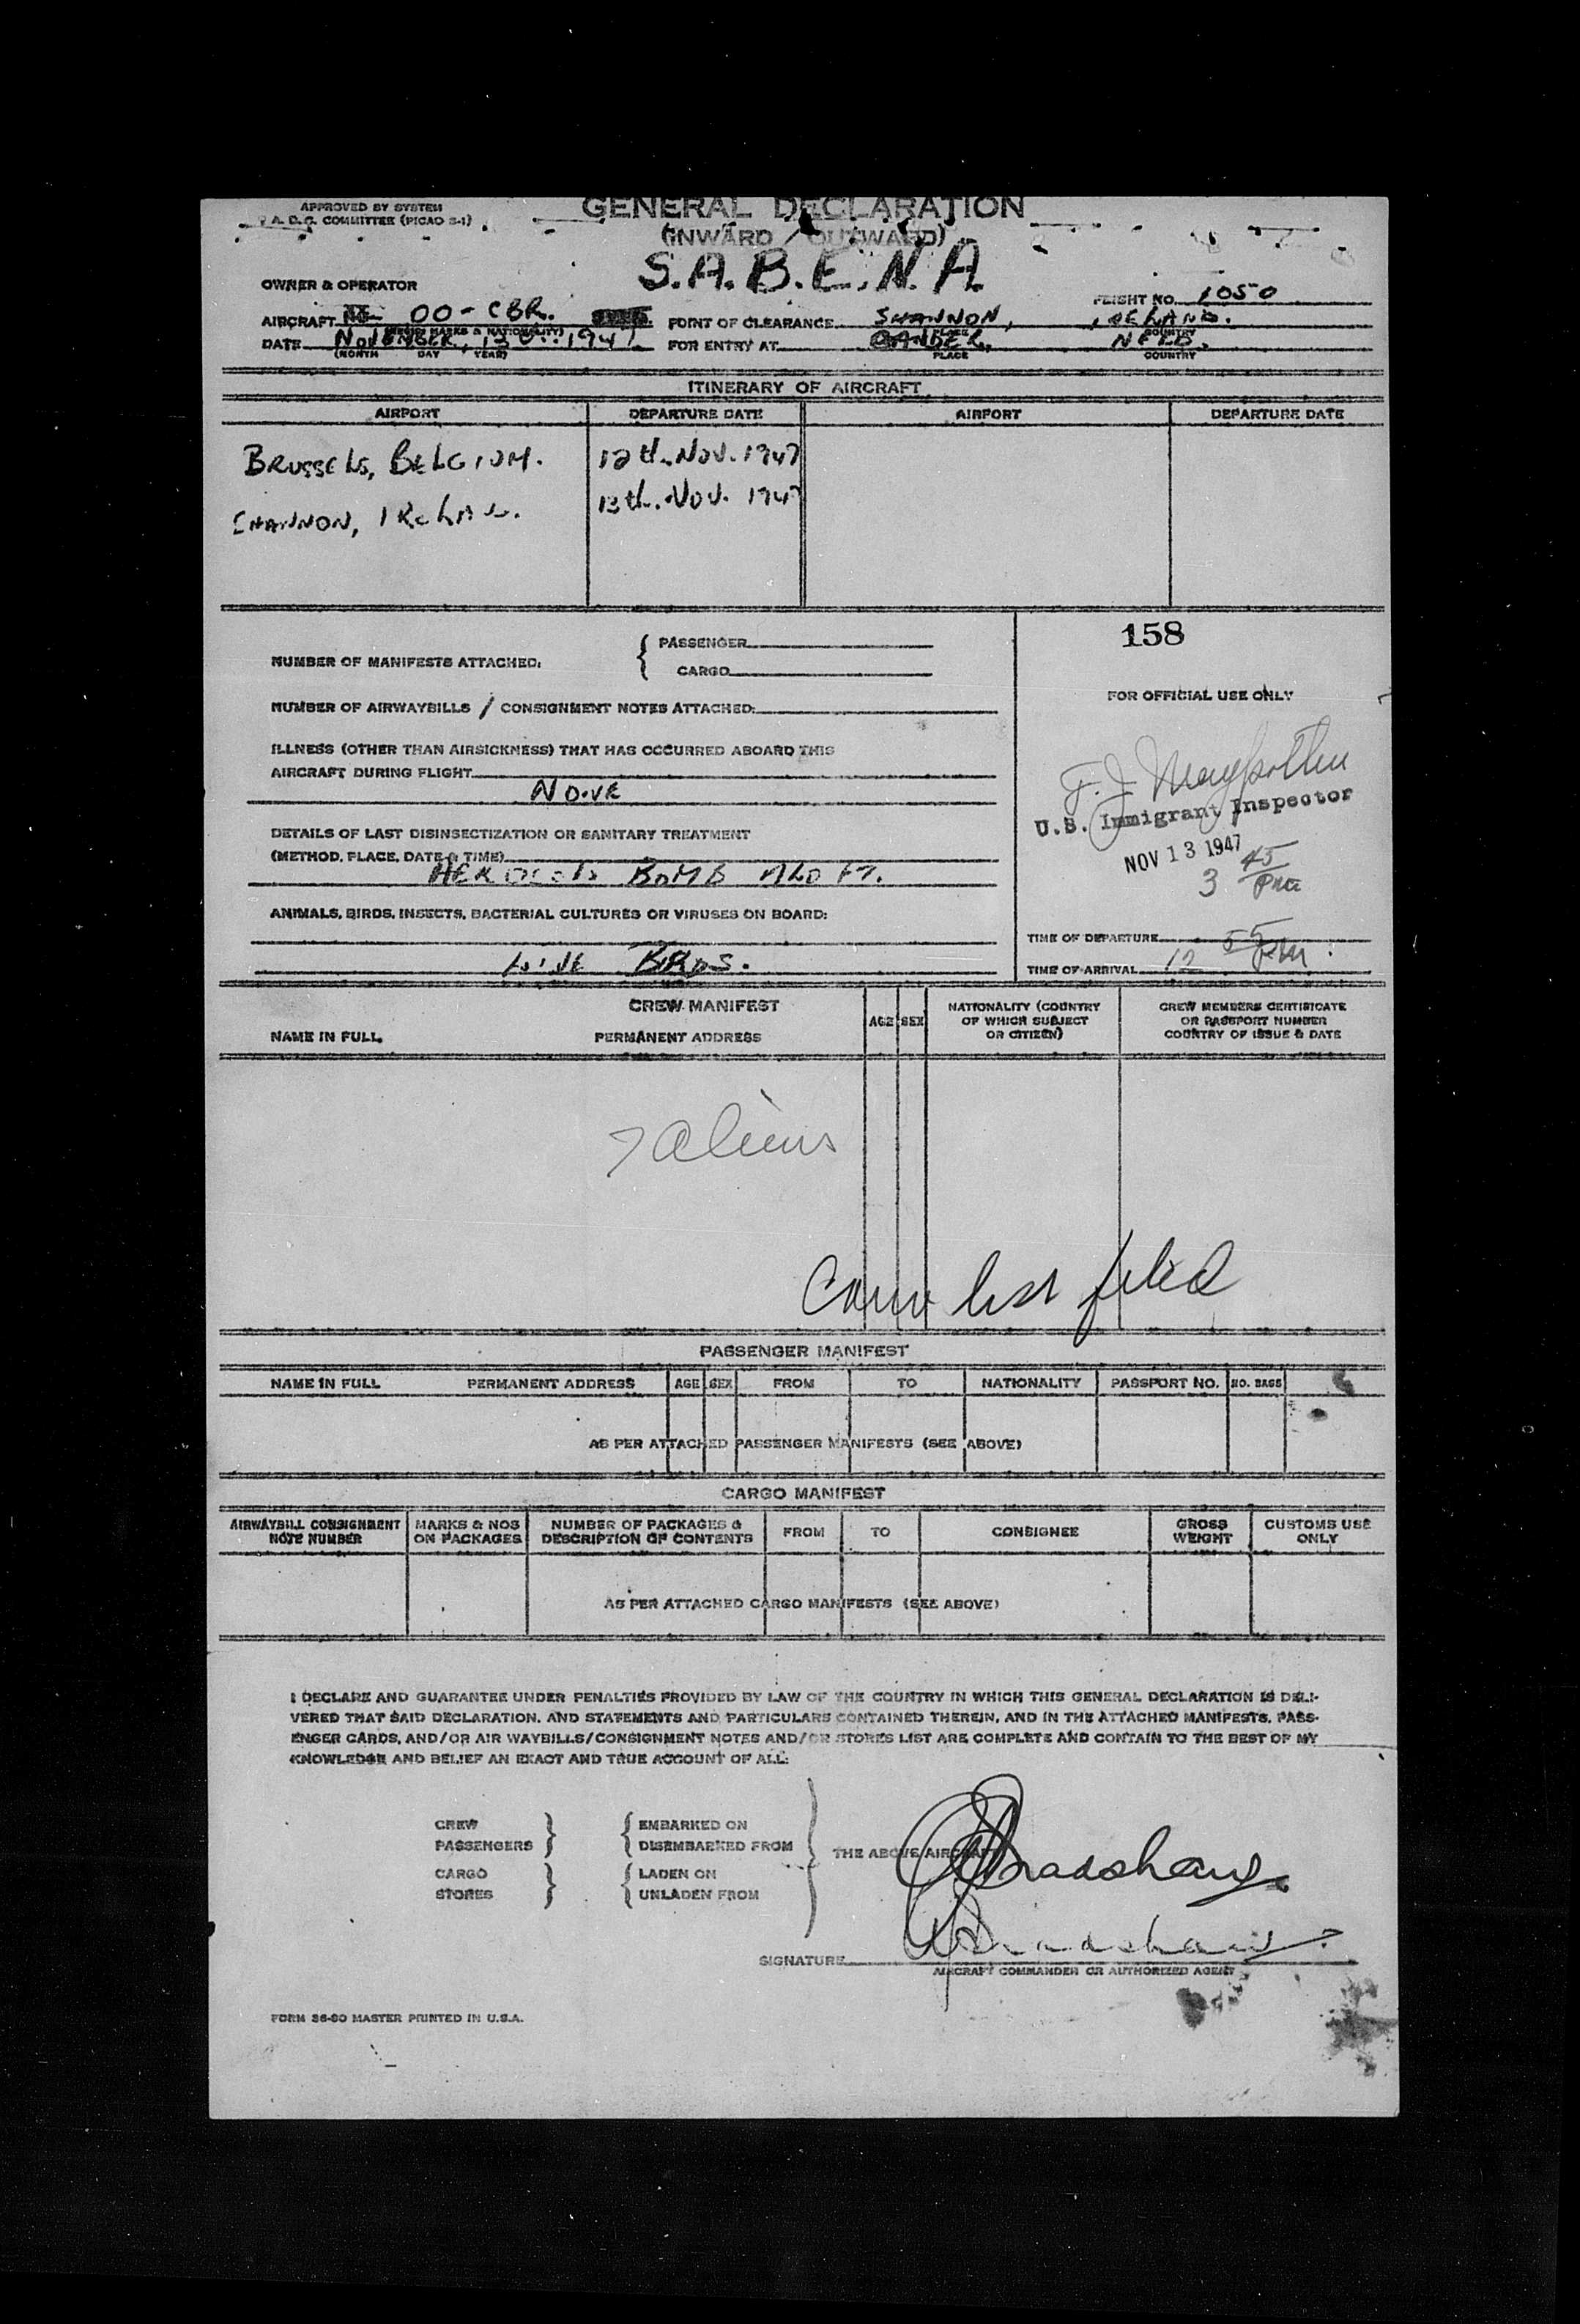 APPROVED BY SYSTEM
A. D. C. COMMITTEE (PICAO S-1)
GENERAL DECLARATION
(INWARD / OUTWARD)
S.A.B.E.N.A.
OWNER & OPERATOR
FLIGHT NO. 1050
AIRCRAFT OO-CBR. POINT OF CLEARANCE SHANNON, IRELAND.
(REGIS. MARKS & NATIONALITY) PLACE COUNTRY
DATE NOVEMBER, 1947 FOR ENTRY AT GANDER, NFLD.
(MONTH DAY YEAR) PLACE COUNTRY
ITINERARY OF AIRCRAFT
AIRPORT DEPARTURE DATE AIRPORT DEPARTURE DATE
BRUSSELS, BELGIUM. 12th. Nov. 1947
SHANNON, 13th. Nov. 1947
158
NUMBER OF MANIFESTS ATTACHED: { PASSENGER
CARGO
FOR OFFICIAL USE ONLY
NUMBER OF AIRWAYBILLS / CONSIGNMENT NOTES ATTACHED:
ILLNESS (OTHER THAN AIRSICKNESS) THAT HAS OCCURRED ABOARD THIS
AIRCRAFT DURING FLIGHT
NONE
F. J.
U.S. Immigrant Inspector
NOV 13 1947
3 45 pm
DETAILS OF LAST DISINSECTIZATION OR SANITARY TREATMENT
(METHOD, PLACE, DATE & TIME)
BOMB ALOFT.
ANIMALS, BIRDS, INSECTS, BACTERIAL CULTURES OR VIRUSES ON BOARD:
LIVE BIRDS.
TIME OF DEPARTURE
TIME OF ARRIVAL 12 55 PM
CREW MANIFEST
NAME IN FULL PERMANENT ADDRESS AGE SEX NATIONALITY (COUNTRY OF WHICH SUBJECT OR CITIZEN) CREW MEMBERS CERTIFICATE OR PASSPORT NUMBER COUNTRY OF ISSUE & DATE
7 aliens
Crew list filed
PASSENGER MANIFEST
NAME IN FULL PERMANENT ADDRESS AGE SEX FROM TO NATIONALITY PASSPORT NO. NO. BAGS
AS PER ATTACHED PASSENGER MANIFESTS (SEE ABOVE)
CARGO MANIFEST
AIRWAYBILL CONSIGNMENT NOTE NUMBER MARKS & NOS ON PACKAGES NUMBER OF PACKAGES & DESCRIPTION OF CONTENTS FROM TO CONSIGNEE GROSS WEIGHT CUSTOMS USE ONLY
AS PER ATTACHED CARGO MANIFESTS (SEE ABOVE)
I DECLARE AND GUARANTEE UNDER PENALTIES PROVIDED BY LAW OF THE COUNTRY IN WHICH THIS GENERAL DECLARATION IS DELI-
VERED THAT SAID DECLARATION, AND STATEMENTS AND PARTICULARS CONTAINED THEREIN, AND IN THE ATTACHED MANIFESTS, PASS-
ENGER CARDS, AND/OR AIR WAYBILLS/CONSIGNMENT NOTES AND/OR STORES LIST ARE COMPLETE AND CONTAIN TO THE BEST OF MY
KNOWLEDGE AND BELIEF AN EXACT AND TRUE ACCOUNT OF ALL:
CREW } { EMBARKED ON
PASSENGERS DISEMBARKED FROM
THE ABOVE AIRCRAFT
CARGO } { LADEN ON
STORES UNLADEN FROM
Bradshaw
Bradshaw
SIGNATURE
AIRCRAFT COMMANDER OR AUTHORIZED AGENT
FORM 36-80 MASTER PRINTED IN U.S.A.